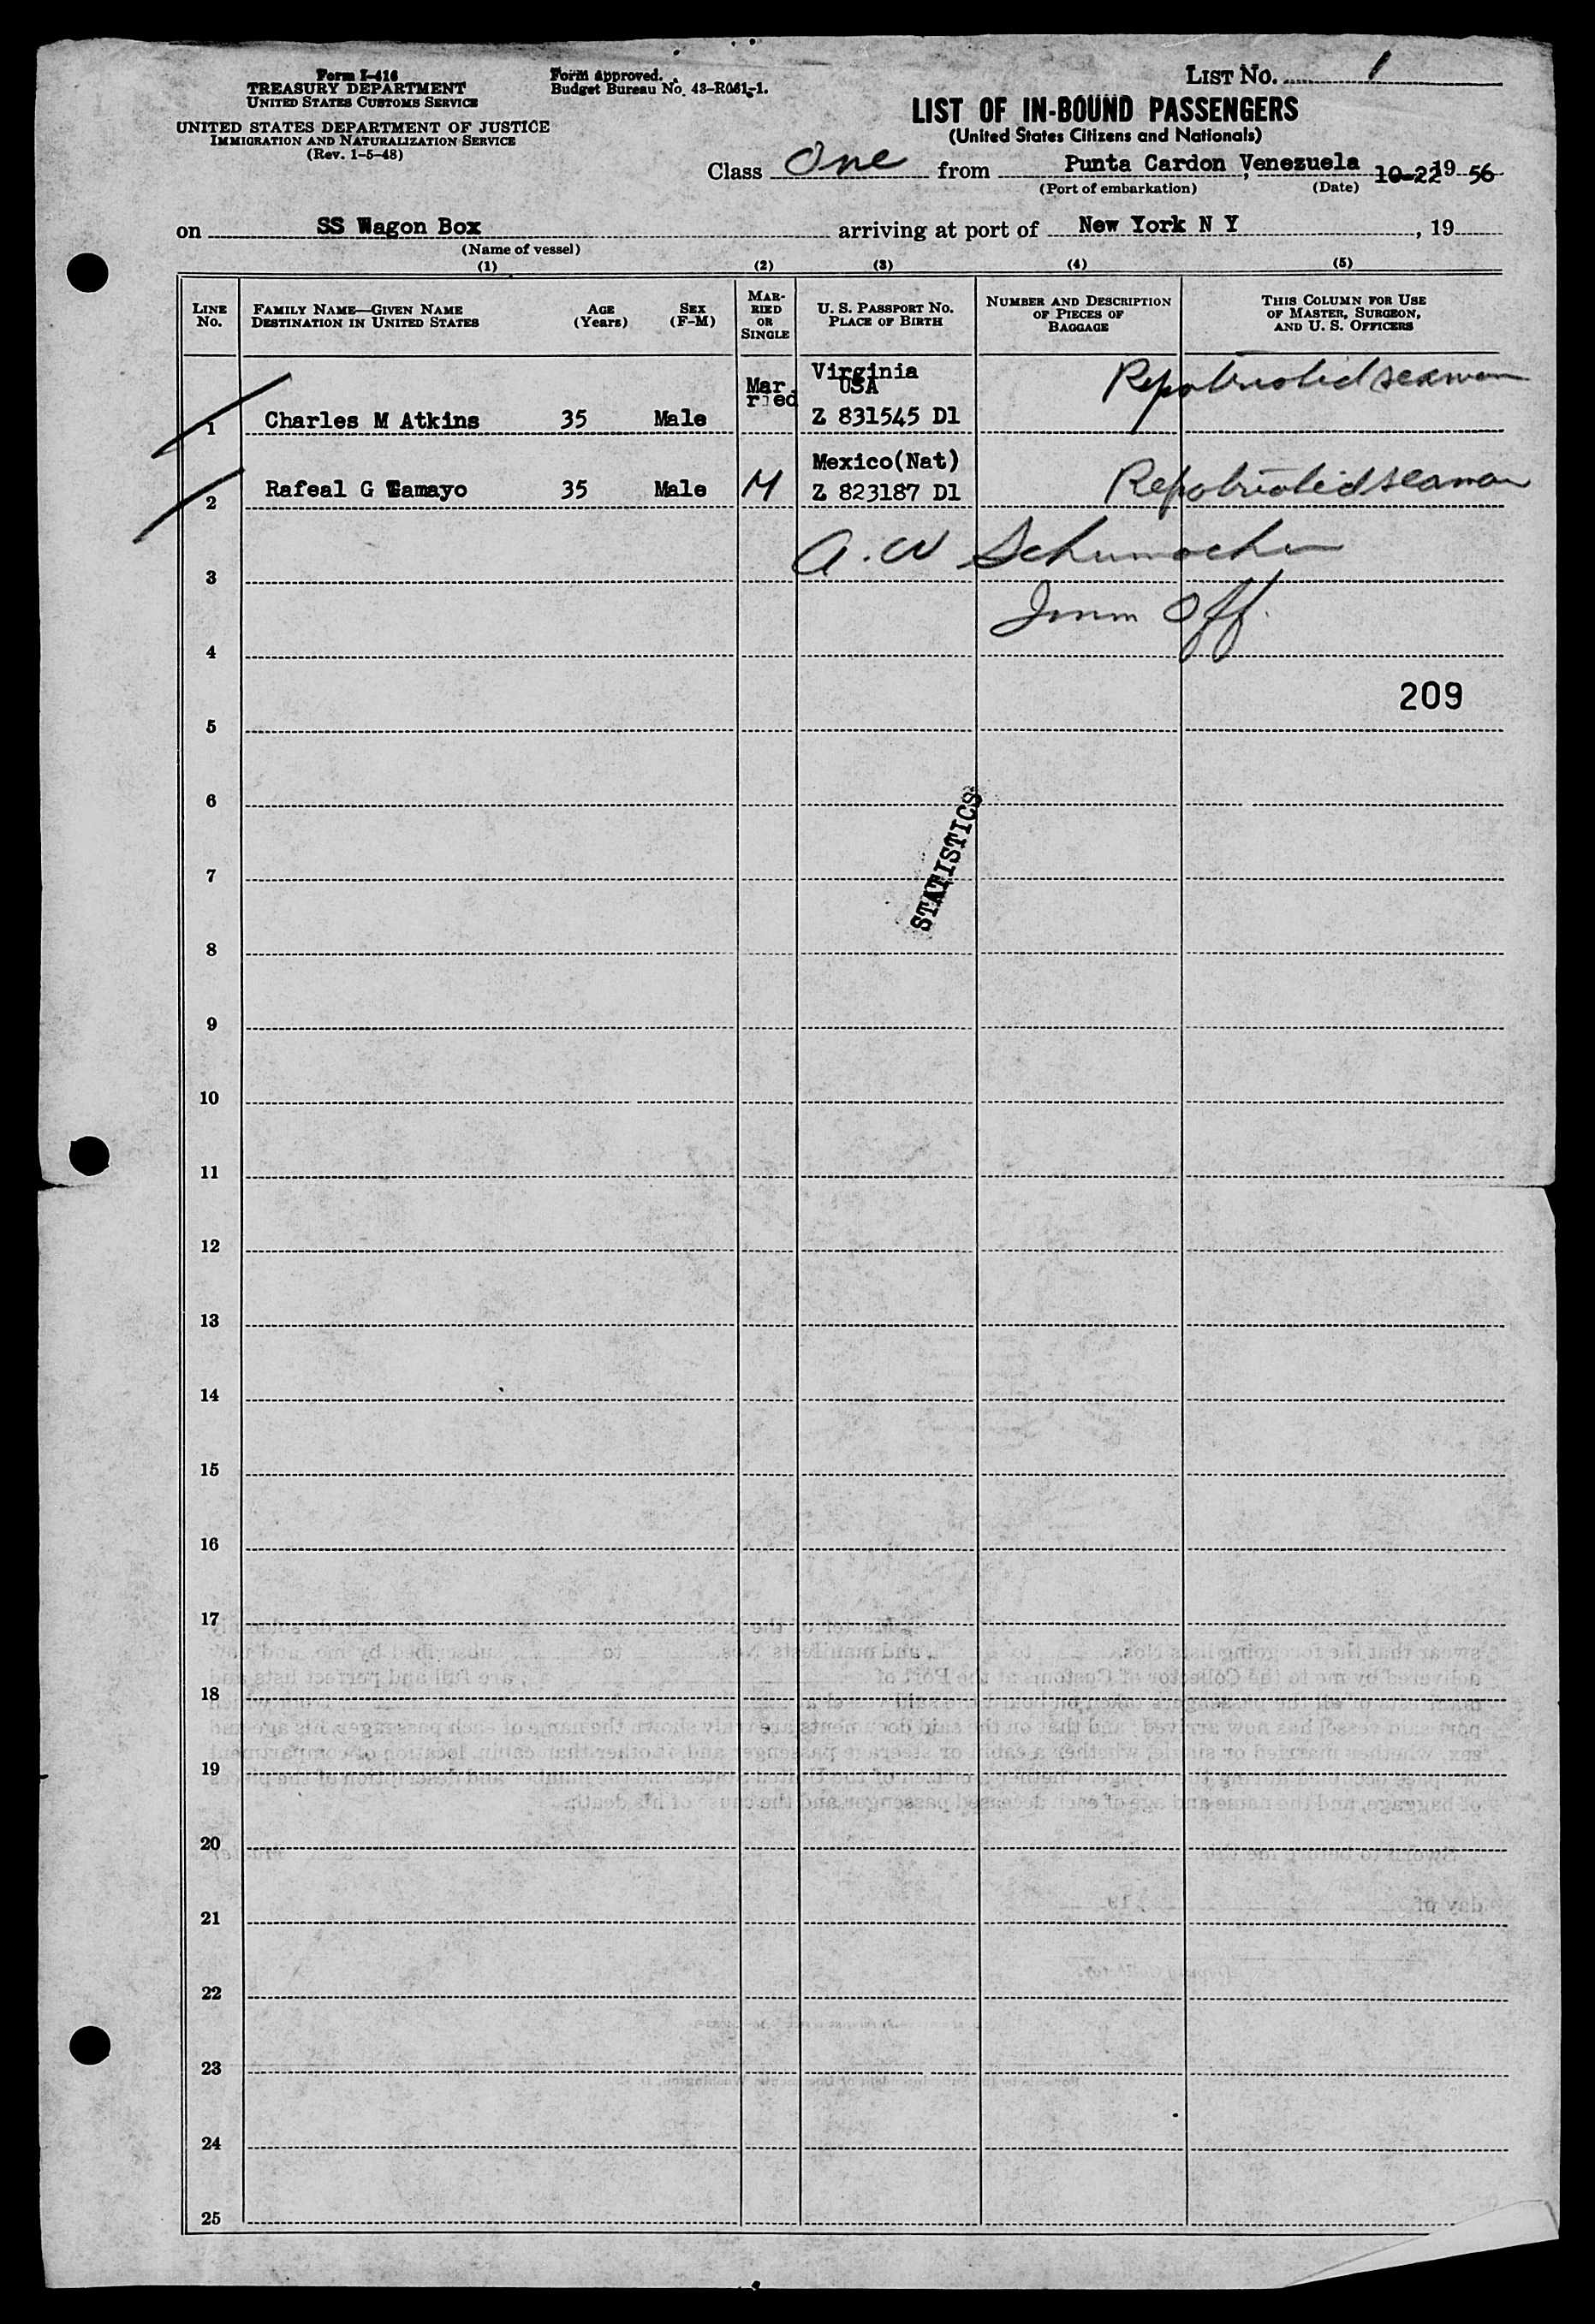 Form I-416
TREASURY DEPARTMENT
UNITED STATES CUSTOMS SERVICE
UNITED STATES DEPARTMENT OF JUSTICE
IMMIGRATION AND NATURALIZATION SERVICE
(Rev. 1-5-48)
Form approved.
Budget Bureau No. 43-R061-1.
LIST No. 1
LIST OF IN-BOUND PASSENGERS
(United States Citizens and Nationals)
Class One from Punta Cardon, Venezuela 10-22 19 56
(Port of embarkation) (Date)
on SS Wagon Box arriving at port of New York N Y, 19
(Name of vessel)
(1) (2) (3) (4) (5)
LINE No. FAMILY NAME—GIVEN NAME DESTINATION IN UNITED STATES AGE (Years) SEX (F-M) MARRIED OR SINGLE U. S. PASSPORT No. PLACE OF BIRTH NUMBER AND DESCRIPTION OF PIECES OF BAGGAGE THIS COLUMN FOR USE OF MASTER, SURGEON, AND U. S. OFFICERS
Virginia
USA
1 Charles M Atkins 35 Male Married Z 831545 D1 Repatriated seaman
Mexico(Nat)
2 Rafeal G Tamayo 35 Male M Z 823187 D1 Repatriated seaman
A. W Schumacher
3
Imm Off.
4
209
5
6
STATISTICS
7
8
9
10
11
12
13
14
15
16
17
18
19
20
21
22
23
24
25